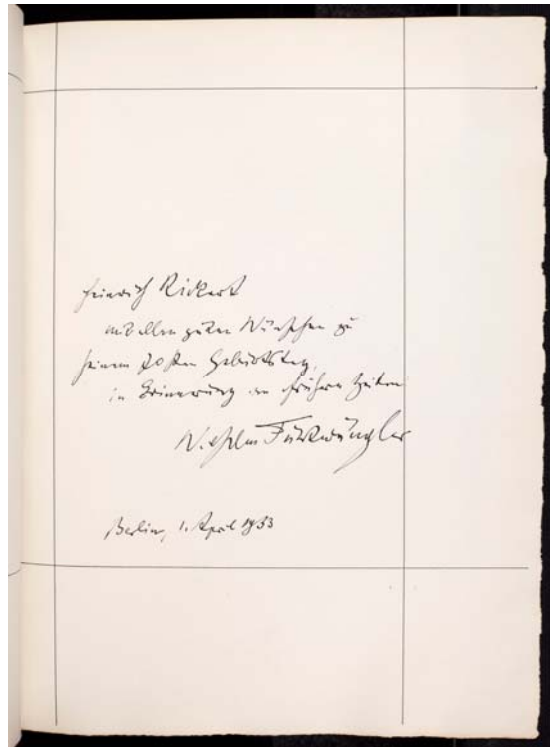 Heinrich Rickert
mit allen guten Wünschen zu
seinem 70sten Geburtstag,
in Erinnerung an frühere Zeiten
Wilhelm Furtwängler
Berlin, 1. April 1933